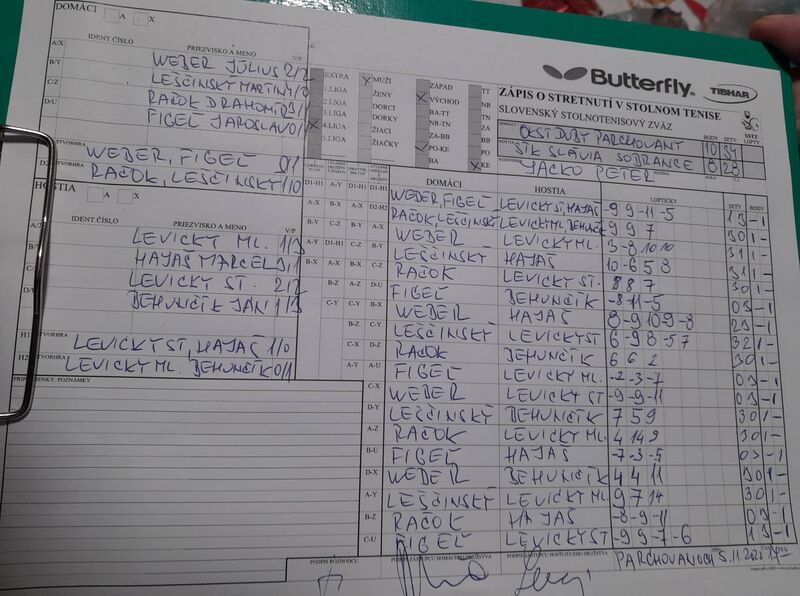 DOMÁCI A X
IDENT.ČÍSLO PRIEZVISKO A MENO V/P
A/X WEBER JÚLIUS 2/2
B/Y LEŠČINSKÝ MARTIN 4/0
C/Z RAČOK DRAHOMÍR 3/1
D/U FIGEĽ JAROSLAV 0/4
ŠTVORHRA WEBER, FIGEĽ 0/1
D2 ŠTVORHRA RAČOK, LEŠČINSKÝ 1/0
HOSTIA A X
IDENT.ČÍSLO PRIEZVISKO A MENO V/P
LEVICKÝ ML. 1/3
HAJAŠ MARCEL 3/1
LEVICKÝ ST. 2/2
BEHUNČÍK JÁN 1/3
H1 ŠTVORHRA LEVICKÝ ST, HAJAŠ 1/0
H2 ŠTVORHRA LEVICKÝ ML. BEHUNČÍK 0/1
PRIPOMIENKY, POZNÁMKY
EXTRA X MUŽI ZÁPAD TT
1.LIGA ŽENY X VÝCHOD NR
2.LIGA DORCI BA-TT ZA
3.LIGA DORKY NR-TN BB
X 4.LIGA ŽIACI ZA-BB PO
5.LIGA ŽIAČKY PO-KE KE
BA X KE
Butterfly TIBHAR
ZÁPIS O STRETNUTÍ V STOLNOM TENISE
SLOVENSKÝ STOLNOTENISOVÝ ZVÄZ SSTZ
DOMÁCI OKST DUBY PARCHOVANY BODY 10 SETY 34 LOPTY
HOSTIA STK SLAVIA SOBRANCE 8 28
ROZHODCA JACKO PETER
DOMÁCI HOSTIA LOPTIČKY SETY BODY
D1-H1 WEBER, FIGEĽ LEVICKÝ ST, HAJAŠ -9 9 -11 -5 13 -1
D2-H2 RAČOK, LEŠČINSKÝ LEVICKÝ ML BEHUNČÍK 9 9 7 30 1-
A-X WEBER LEVICKÝ ML. 3 -8 10 10 31 1-
B-Y LEŠČINSKÝ HAJAŠ 10 -6 5 8 31 1-
C-Z RAČOK LEVICKÝ ST. 8 8 7 30 1-
D-U FIGEĽ BEHUNČÍK -8 -11 -5 03 -1
A-Y WEBER HAJAŠ 8 -9 10 -9 -8 23 -1
B-Z LEŠČINSKÝ LEVICKÝ ST 6 -9 8 -5 7 32 1-
C-U RAČOK BEHUNČÍK 6 6 2 30 1-
FIGEĽ LEVICKÝ ML. -2 -3 -7 03 -1
C-X WEBER LEVICKÝ ST -9 -9 -11 03 -1
D-Y LEŠČINSKÝ BEHUNČÍK 7 5 9 30 1-
A-Z RAČOK LEVICKÝ ML 4 14 9 30 1-
B-U FIGEĽ HAJAŠ -7 -3 -5 03 -1
D-X WEBER BEHUNČÍK 4 4 11 30 1-
A-Y LEŠČINSKÝ LEVICKÝ ML 9 7 14 30 1-
B-Z RAČOK HAJAŠ -8 -9 -11 03 -1
C-U FIGEĽ LEVICKÝ ST -9 9 -7 -6 13 -1
PODPIS ROZHODCU PODPIS ZÁSTUPCU DOMÁCEHO DRUŽSTVA PODPIS ZÁSTUPCU HOSŤUJÚCEHO DRUŽSTVA PARCHOVANOCH 5.11.202